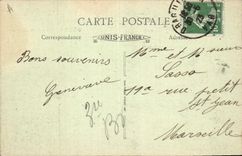 CARTE POSTALE
Correspondance
UNIS-FRANCE
Bons souvenirs
Genevieve
Mme et M
Sasso
11a rue petit
St Jean
Marseille